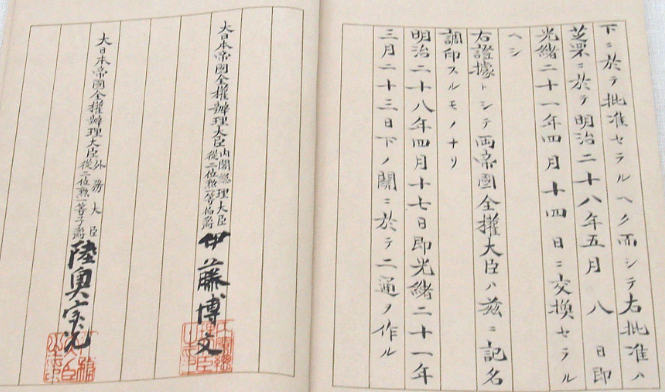 下ニ於テ批准セラルヘク而シテ右批准ハ
芝罘ニ於テ明治二十八年五月八日即
光緒二十一年四月十四日ニ交換セラル
ヘシ
右證據トシテ両帝國全權大臣ハ茲ニ記名
調印スルモノナリ
明治二十八年四月十七日即光緒二十一年
三月二十三日下ノ關ニ於テ二通ヲ作ル
大日本帝國全權辦理大臣
內閣總理大臣
從二位勲一等伯爵
伊藤博文
大日本帝國全權辦理大臣
外務大臣
從二位勲一等子爵
陸奧宗光